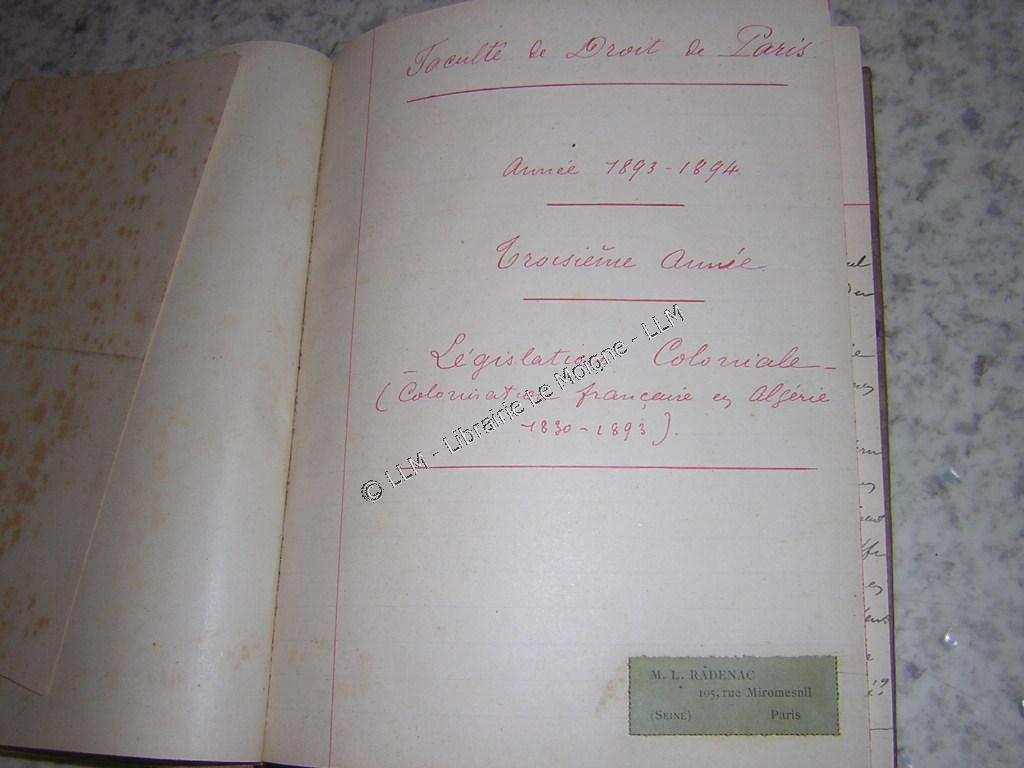 Faculté de Droit de Paris
Année 1893-1894.
Troisième Année.
- Législation Coloniale -
(Colonisation française en Algérie
1830-1893).
© LLM - Librairie Le Moigne - LLM
M. L. RADENAC
105, rue Miromesnil
(SEINE) Paris